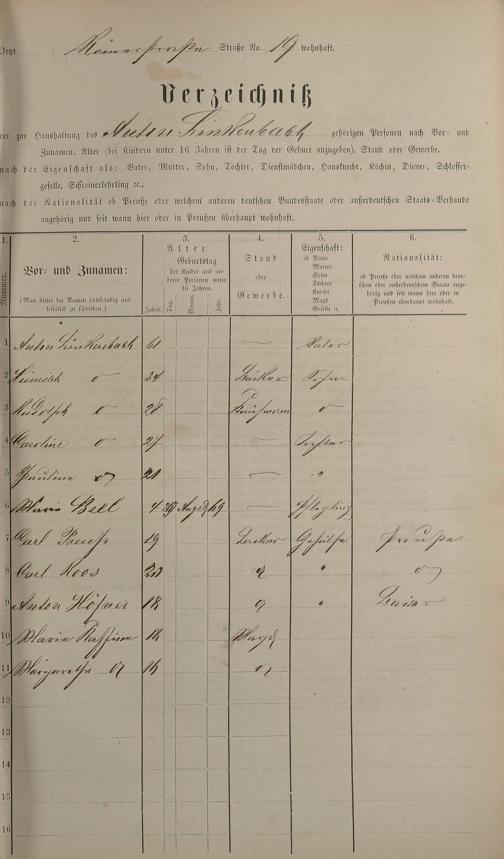 Jetzt Römerstraße Straße No. 19 wohnhaft.
Verzeichniß
der zur Haushaltung des Anton Linkenbach gehörigen Personen nach Vor- und
Zunamen, Alter (bei Kindern unter 16 Jahren ist der Tag der Geburt anzugeben), Stand oder Gewerbe,
nach der Eigenschaft als: Vater, Mutter, Sohn, Tochter, Dienstmädchen, Hausknecht, Köchin, Diener, Schlosser-
geselle, Schreinerlehrling ꝛc.,
nach der Nationalität ob Preuße oder welchem anderen deutschen Bundesstaate oder außerdeutschen Staats-Verbande
angehörig und seit wann hier oder in Preußen überhaupt wohnhaft.
1. 2. 3. 4. 5. 6.
Nummer.
Vor- und Zunamen:
(Man bittet die Namen vollständig und
leserlich zu schreiben.)
Alter
Geburtstag
der Kinder und an-
derer Personen unter
16 Jahren.
Jahre. Tag. Monat. Jahr.
Stand
oder
Gewerbe.
Eigenschaft:
ob Vater
Mutter
Sohn
Tochter
Knecht
Magd
Geselle u.
Nationalität:
ob Preuße oder welchem anderen deut-
schen oder außerdeutschen Staat ange-
hörig und seit wann hier oder in
Preußen überhaupt wohnhaft.
1 Anton Linkenbach 61 — Vater
2 Heinrich o 34 Bäcker Sohn
3 Rudolph o 28 Kaufmann o
4 Caroline o 27 — Tochter
5 Pauline 21 — "
6 Marie Beel 4 Aug 69 — Pflegling
7 Carl Preuße 19 Becker Gehülfe Preuße
8 Carl Roos "
9 Anton Höfner 18 "
10 Maria 18 Magd
11 Margaretha 16
12
13
14
15
16